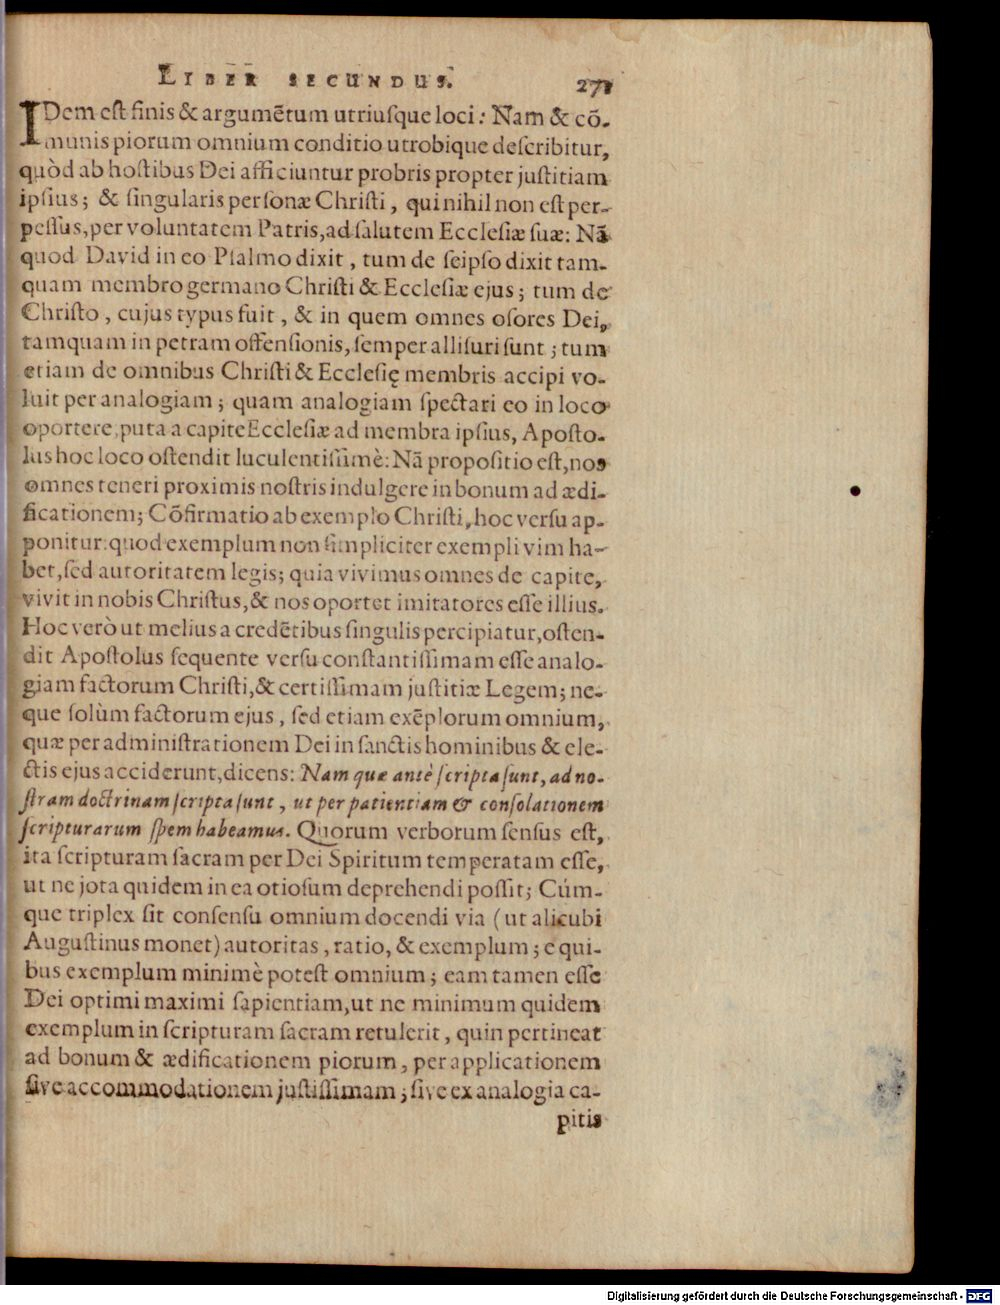 LIBER SECUNDUS. 271
IDem est finis & argumētum utriusque loci: Nam & cō-
munis piorum omnium conditio utrobique describitur,
quòd ab hostibus Dei afficiuntur probris propter justitiam
ipsius; & singularis personæ Christi, qui nihil non est per-
pessus, per voluntatem Patris, ad salutem Ecclesiæ suæ: Nā
quod David in eo Psalmo dixit, tum de seipso dixit tam-
quam membro germano Christi & Ecclesiæ ejus; tum de
Christo, cujus typus fuit, & in quem omnes osores Dei,
tamquam in petram offensionis, semper allisuri sunt; tum
etiam de omnibus Christi & Ecclesię membris accipi vo-
luit per analogiam; quam analogiam spectari eo in loco
oportere, puta a capite Ecclesiæ ad membra ipsius, Aposto-
lus hoc loco ostendit luculentissimè: Nā propositio est, nos
omnes teneri proximis nostris indulgere in bonum ad ædi-
ficationem; Cōfirmatio ab exemplo Christi, hoc versu ap-
ponitur: quod exemplum non simpliciter exempli vim ha-
bet, sed autoritatem legis; quia vivimus omnes de capite,
vivit in nobis Christus, & nos oportet imitatores esse illius.
Hoc verò ut melius a credētibus singulis percipiatur, osten-
dit Apostolus sequente versu constantissimam esse analo-
giam factorum Christi, & certissimam justitiæ Legem; ne-
que solùm factorum ejus, sed etiam exēplorum omnium,
quæ per administrationem Dei in sanctis hominibus & ele-
ctis ejus acciderunt, dicens: Nam quæ antè scripta sunt, ad no-
stram doctrinam scripta sunt, ut per patientiam & consolationem
scripturarum spem habeamus. Quorum verborum sensus est,
ita scripturam sacram per Dei Spiritum temperatam esse,
ut ne jota quidem in ea otiosum deprehendi possit; Cúm-
que triplex sit consensu omnium docendi via (ut alicubi
Augustinus monet) autoritas, ratio, & exemplum; e qui-
bus exemplum minimè potest omnium; eam tamen esse
Dei optimi maximi sapientiam, ut ne minimum quidem
exemplum in scripturam sacram retulerit, quin pertineat
ad bonum & ædificationem piorum, per applicationem
sive accommodationem justissimam; sive ex analogia ca-
pitis
Digitalisierung gefördert durch die Deutsche Forschungsgemeinschaft - DFG